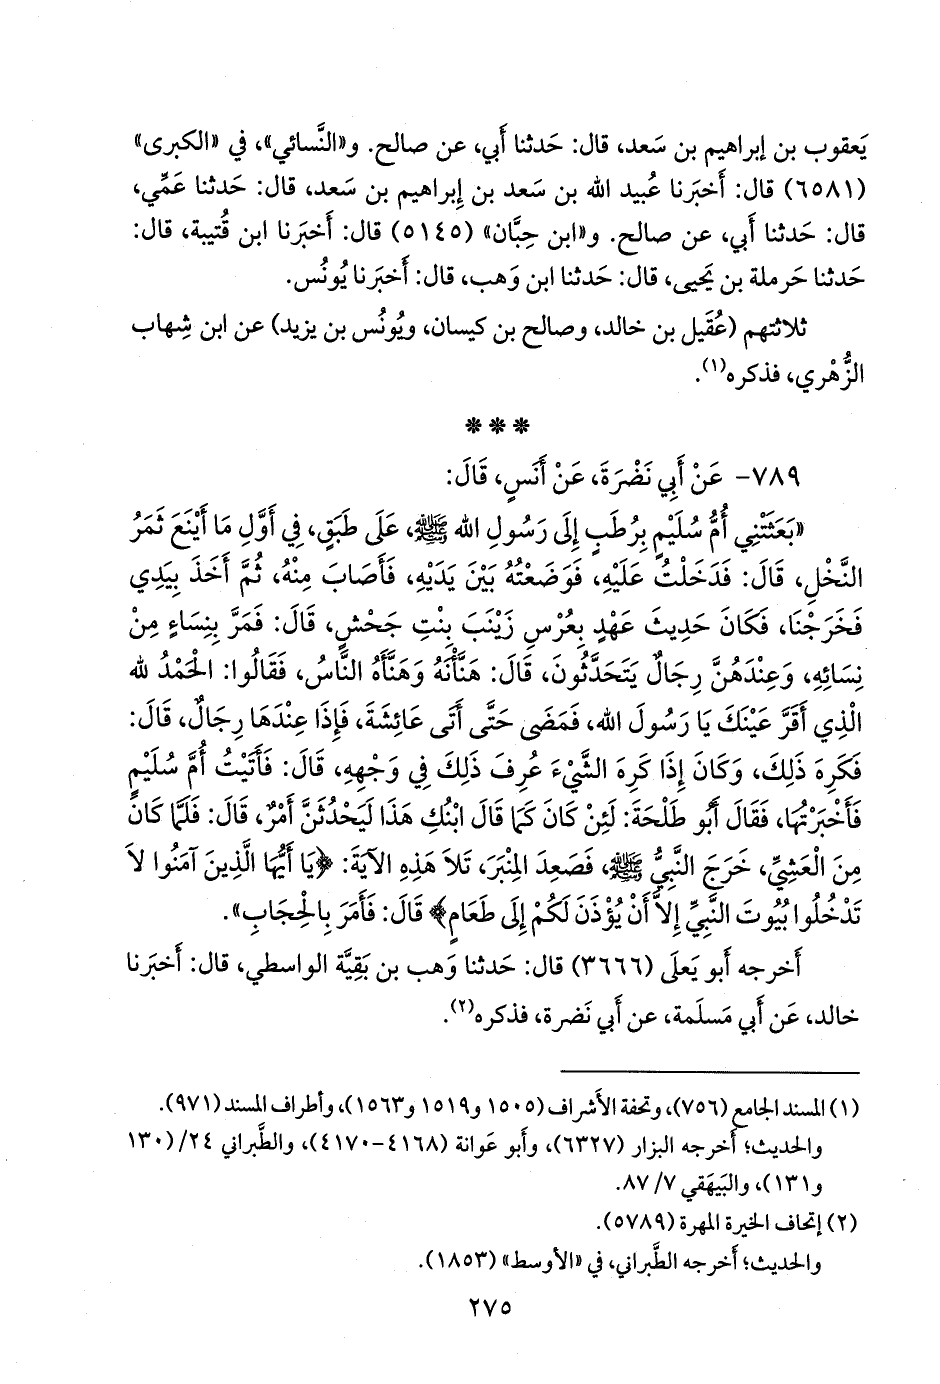 يَعقوب بن إبراهيم بن سَعد، قال: حَدثنا أَبي، عن صالح. و«النَّسائي»، في «الكبرى»
(٦٥٨١) قال: أَخبَرنا عُبيد الله بن سَعد بن إِبراهيم بن سَعد، قال: حَدثنا عَمِّي،
قال: حَدثنا أَبي، عن صالح. و«ابن حِبَّان» (٥١٤٥) قال: أَخبَرنا ابن قُتيبة، قال:
حَدثنا حَرملة بن يَحيى، قال: حَدثنا ابن وَهب، قال: أَخبَرنا يُونُس.
ثلاثتهم (عُقَيل بن خالد، وصالح بن كيسان، ويُونُس بن يزيد) عن ابن شِهاب
الزُّهْري، فذكره(١).
* * *
٧٨٩- عَنْ أَبِي نَضْرَةَ، عَنْ أَنَسٍ، قَالَ:
«بَعَثَتْنِي أُمُّ سُلَيْمٍ بِرُطَبٍ إِلَى رَسُولِ الله ﷺ، عَلَى طَبَقٍ، فِي أَوَّلِ مَا أَيْنَعَ ثَمَرُ
النَّخْلِ، قَالَ: فَدَخَلْتُ عَلَيْهِ، فَوَضَعْتُهُ بَيْنَ يَدَيْهِ، فَأَصَابَ مِنْهُ، ثُمَّ أَخَذَ بِيَدِي
فَخَرَجْنَا، فَكَانَ حَدِيثَ عَهْدٍ بِعُرْسِ زَيْنَبَ بِنْتِ جَحْشٍ، قَالَ: فَمَرَّ بِنِسَاءٍ مِنْ
نِسَائِهِ، وَعِنْدَهُنَّ رِجَالٌ يَتَحَدَّثُونَ، قَالَ: هَنَّأْنَهُ وَهَنَّأَهُ النَّاسُ، فَقَالُوا: الْحَمْدُ لله
الَّذِي أَقَرَّ عَيْنَكَ يَا رَسُولَ الله، فَمَضَى حَتَّى أَتَى عَائِشَةَ، فَإِذَا عِنْدَهَا رِجَالٌ، قَالَ:
فَكَرِهَ ذَلِكَ، وَكَانَ إِذَا كَرِهَ الشَّيْءَ عُرِفَ ذَلِكَ فِي وَجْهِهِ، قَالَ: فَأَتَيْتُ أُمَّ سُلَيْمٍ
فَأَخْبَرْتُهَا، فَقَالَ أَبُو طَلْحَةَ: لَئِنْ كَانَ كَمَا قَالَ ابْنُكِ هَذَا لَيَحْدُثَنَّ أَمْرٌ، قَالَ: فَلَمَّا كَانَ
مِنَ الْعَشِيِّ، خَرَجَ النَّبِيُّ ﷺ، فَصَعِدَ الْمِنْبَرَ، تَلاَ هَذِهِ الآيَةَ: ﴿يَا أَيُّهَا الَّذِينَ آمَنُوا لاَ
تَدْخُلُوا بُيُوتَ النَّبِيِّ إِلاَّ أَنْ يُؤْذَنَ لَكُمْ إِلَى طَعَامٍ﴾ قَالَ: فَأَمَرَ بِالْحِجَابِ».
أَخرجه أَبو يَعلَى (٣٦٦٦) قال: حَدثنا وَهب بن بَقِيَّة الواسطي، قال: أَخبَرنا
خالد، عَن أَبي مَسلَمة، عن أَبي نَضرة، فذكره(٢).
(١) المسند الجامع (٧٥٦)، وتحفة الأَشراف (١٥٠٥ و١٥١٩ و١٥٦٣)، وأطراف المسند (٩٧١).
والحديث؛ أَخرجه البزار (٦٣٢٧)، وأَبو عَوانة (٤١٦٨-٤١٧٠)، والطَّبراني ٢٤/ (١٣٠
و١٣١)، والبَيهَقي ٧/ ٨٧.
(٢) إتحاف الخيرة المهرة (٥٧٨٩).
والحديث؛ أَخرجه الطَّبراني، في «الأوسط» (١٨٥٣).
٢٧٥